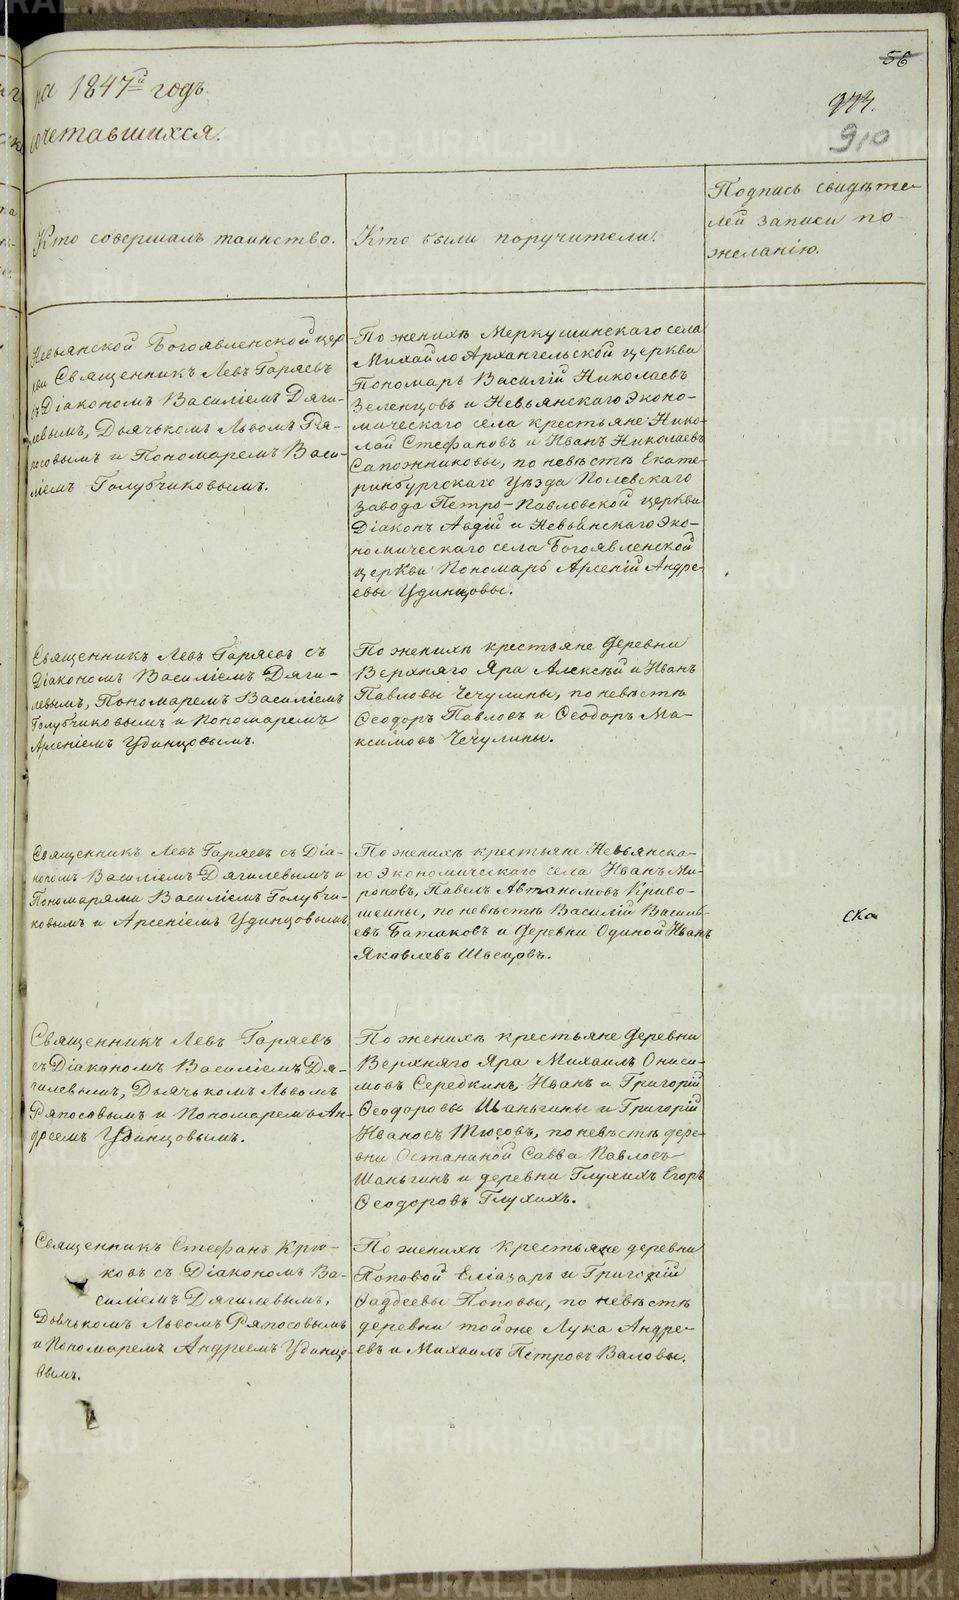 56
на 1847й годъ
973.
910
сочетавшихся.
Кто совершалъ таинство.
Кто были поручители.
Подпись свидѣте-
лей записи по
желанію.
Невьянской Богоявленской цер
кви Священникъ Левъ Гаряевъ
съ Діакономъ Василіемъ Дяги-
левымъ, Дьячькомъ Львомъ Ря-
посовымъ и Пономаремъ Васи-
ліемъ Голубчиковымъ.
По женихѣ Меркушинскаго села
Михайло Архангельской церкви
Пономарь Василій Николаевъ
Зеленцовъ и Невьянскаго Эконо-
мическаго села крестьяне Нико-
лай Стефановъ и Иванъ Николаевъ
Сапожниковы, по невѣстѣ Екате-
ринбургскаго Уѣзда Полевскаго
Завода Петро-Павловской церкви
Діаконъ Авдій и Невьянскаго Эко-
номическаго села Богоявленской
церкви Пономарь Арсеній Андре-
евы Удинцовы.
Священникъ Левъ Гаряевъ съ
Діакономъ Василіемъ Дяги-
левымъ, Пономаремъ Василіемъ
Голубчиковымъ и Пономаремъ
Арсеніемъ Удинцовымъ.
По женихѣ крестьяне Деревни
Верхняго Яра Алексѣй и Иванъ
Павловы Чечулины, по невѣстѣ
Ѳеодоръ Павловъ и Ѳеодоръ Ма-
ксимовъ Чечулины.
Священникъ Левъ Гаряевъ съ Діа-
кономъ Василіемъ Дягилевымъ и
Пономарями Василіемъ Голубчи-
ковымъ и Арсеніемъ Удинцовымъ
По женихѣ крестьяне Невьянска-
го Экономическаго села Иванъ Ми-
роновъ, Павелъ Автаномовъ Криво-
шеины, по невѣстѣ Василій Василь-
евъ Батаковъ и Деревни Одиной Иванъ
Яковлевъ Швецовъ.
ска
Священникъ Левъ Гаряевъ
съ Діакономъ Василіемъ Дя-
гилевымъ, Дьячькомъ Львомъ
Ряпосовымъ и Пономаремъ Ан-
дреемъ Удинцовымъ.
По женихѣ крестьяне Деревни
Верхняго Яра Михаилъ Ониси-
мовъ Середкинъ, Иванъ и Григорій
Ѳеодоровы Шаньгины и Григорій
Ивановъ Тюсовъ, по невѣстѣ дере-
вни Останиной Савва Павловъ
Шаньгинъ и деревни Глухихъ Егоръ
Ѳеодоровъ Глухихъ.
Священникъ Стефанъ Крю-
ковъ съ Діакономъ Ва-
силіемъ Дягилевымъ,
Дьячькомъ Львомъ Ряпосовымъ
и Пономаремъ Андреемъ Удинцо-
вымъ.
По женихѣ крестьяне деревни
Поповой Еліазаръ и Григорій
Фадеевы Поповы, по невѣстѣ
деревни той же Лука Андре-
евъ и Михаилъ Петровъ Валовы.